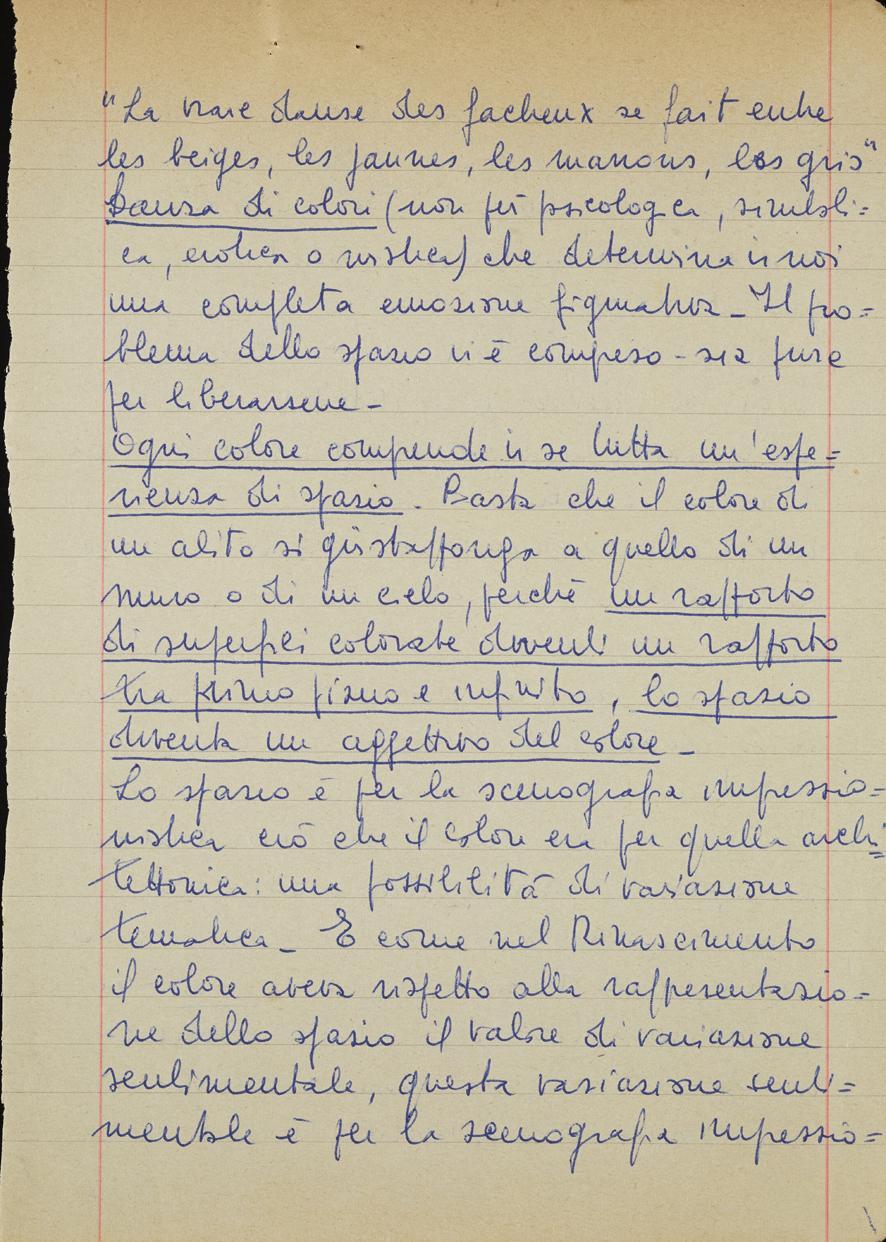 "La vraie danse des facheux se fait entre
les beiges, les jaunes, les marrons, les gris"
Danza di colori (non più psicologica, simboli=
ca, erotica o mistica) che determina in noi
una completa emozione figurativa - Il pro=
blema dello spazio vi è compreso - sia pure
per liberarsene -
Ogni colore comprende in se tutta un'espe=
rienza di spazio. Basta che il colore di
un abito si giustapponga a quello di un
muro o di un cielo, perchè un rapporto
di superfici colorate diventi un rapporto
tra primo piano e infinito, lo spazio
diventa un aggettivo del colore -
Lo spazio è per la scenografia impressio=
nistica ciò che il colore era per quella archi=
tettonica: una possibilità di variazione
tematica - E come nel Rinascimento
il colore aveva rispetto alla rappresentazio=
ne dello spazio il valore di variazione
sentimentale, questa variazione senti=
mentale è per la scenografia impressio=